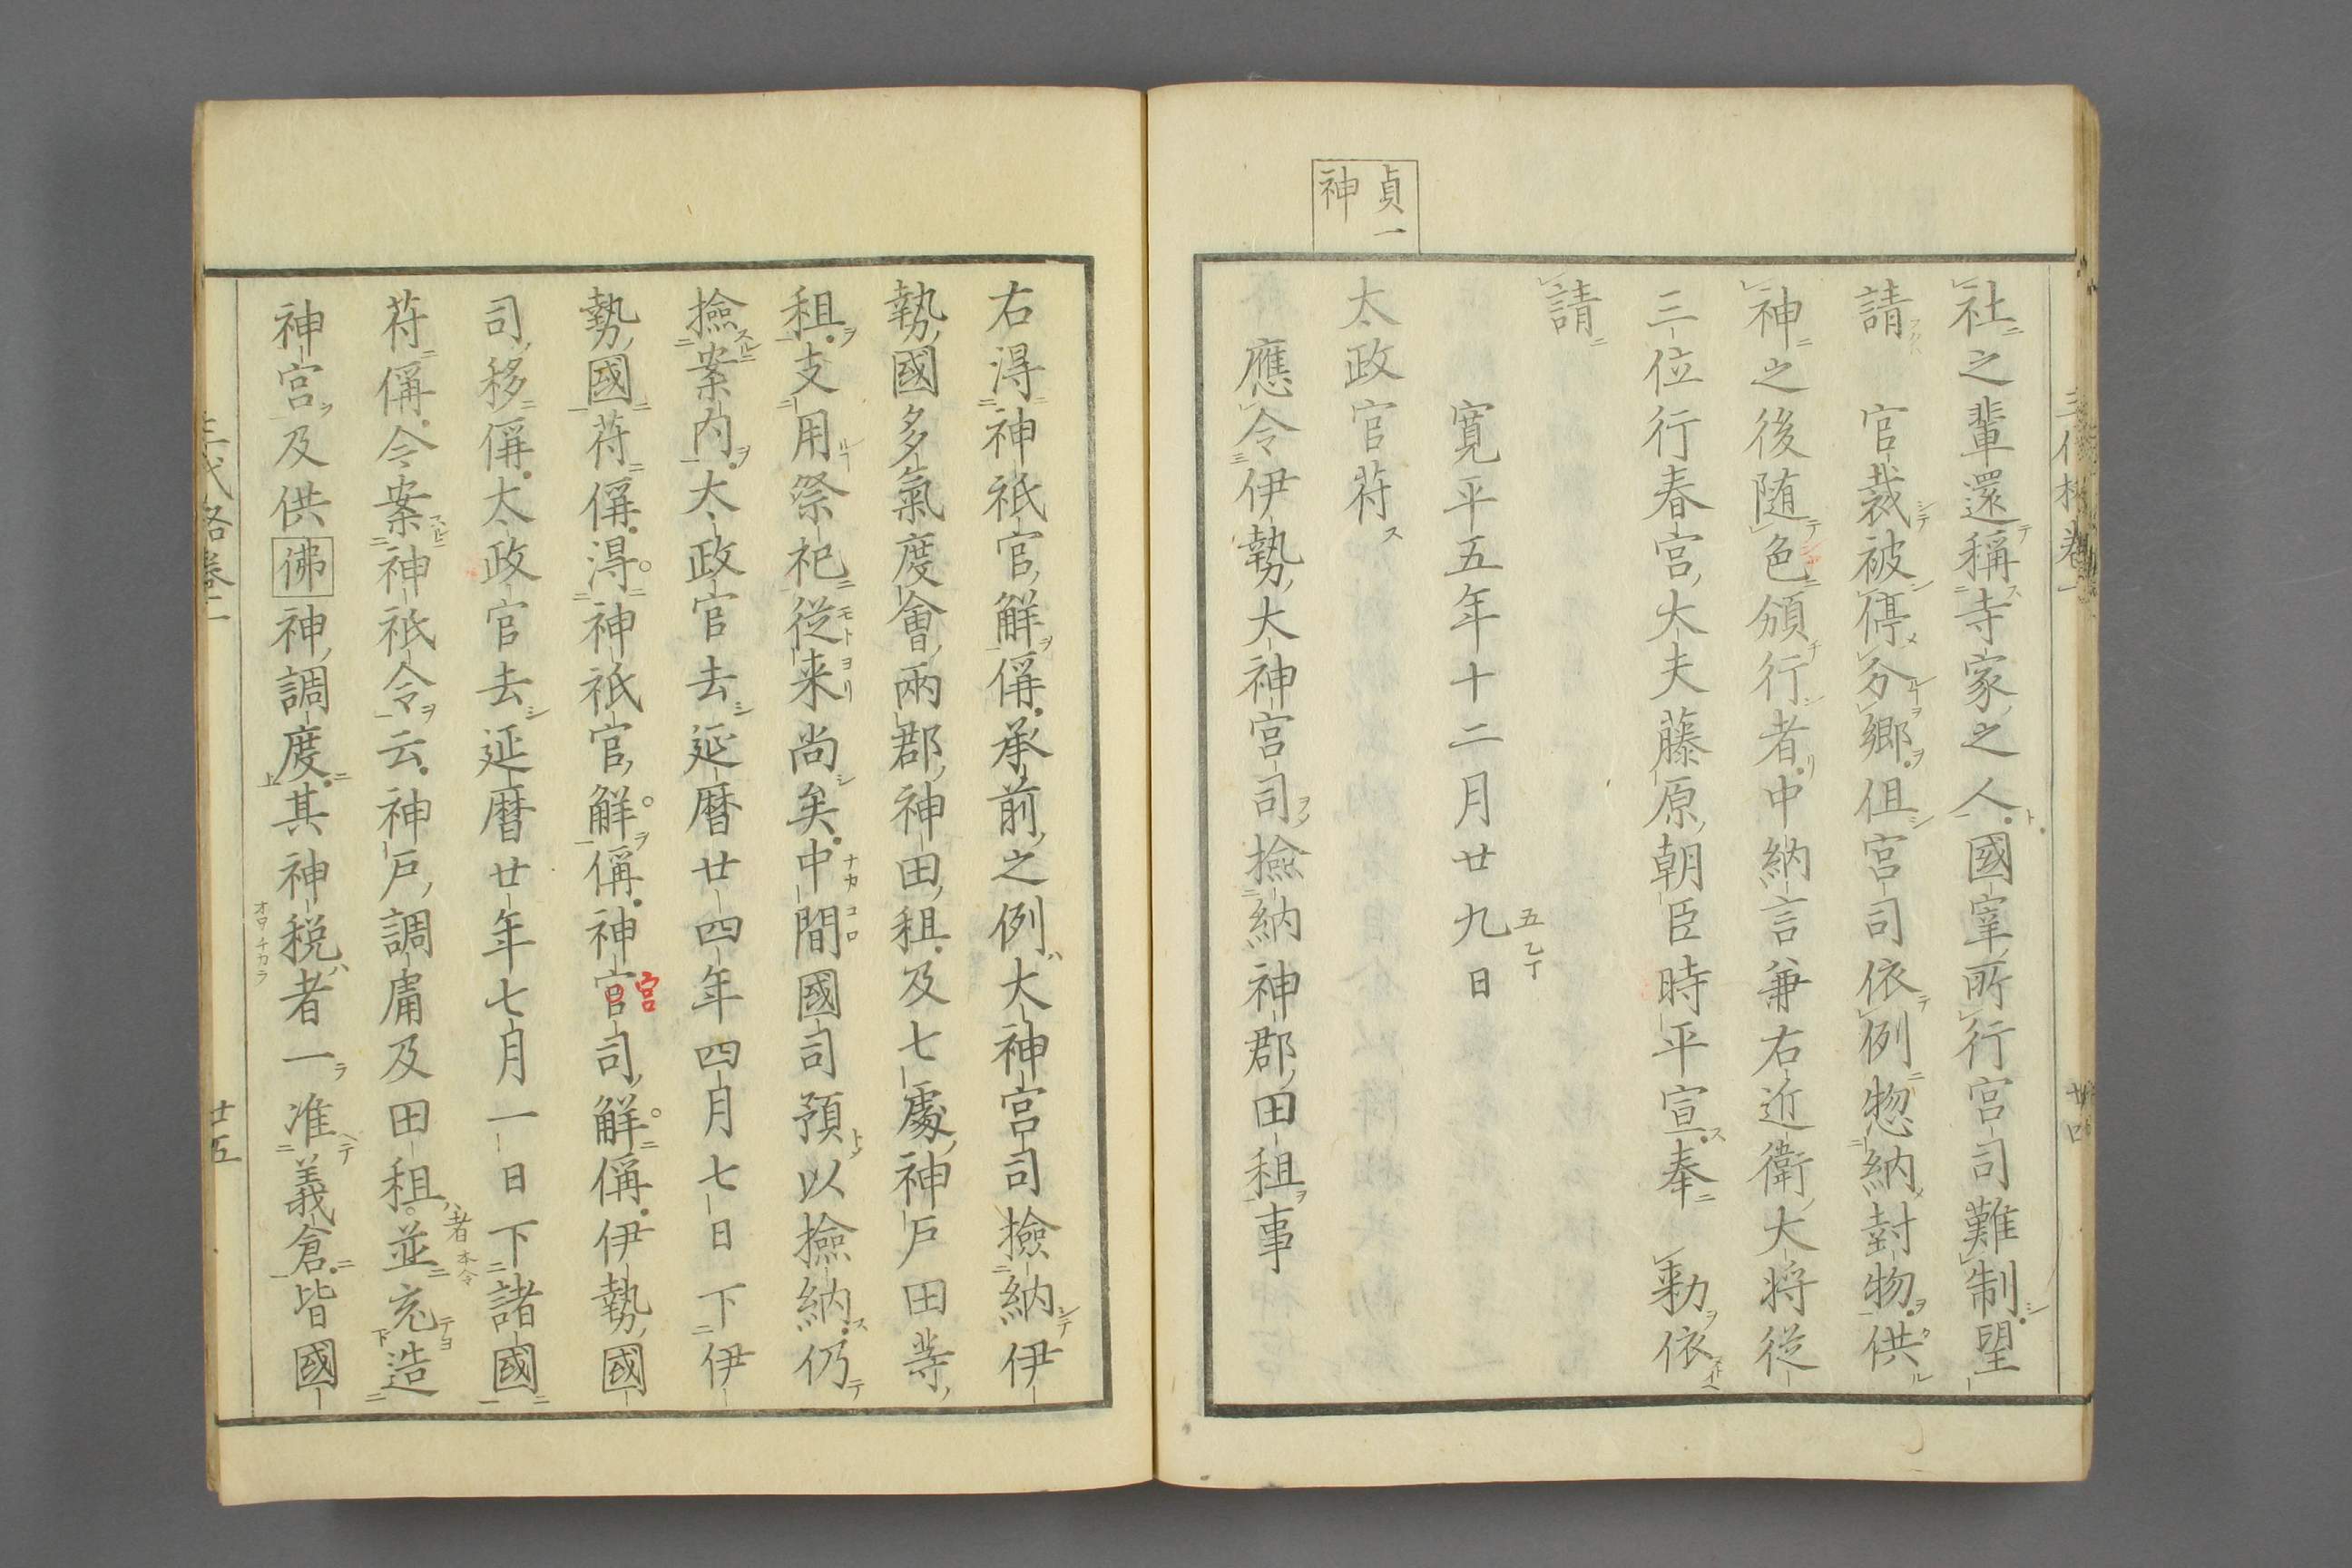 貞一
神
社之輩還稱寺家之人國宰所行宮司難制望
請　官裁被停分郷但宮司依例惣納封物供
神之後随色頒行者中納言兼右近衛大将従
三位行春宮大夫藤原朝臣時平宣奉　勅依
請
寛平五年十二月廿九日
太政官苻
應令伊勢大神宮司撿納神郡田租事
右得神祇官解偁承前之例大神宮司撿納伊
勢國多氣度會兩郡神田租及七處神戸田等
租支用祭祀從来尚矣中間國司預以撿納仍
撿案内太政官去延暦廿四年四月七日下伊
勢國苻偁得神祇官解偁神官司解偁伊勢國
宮
司移偁太政官去延暦廿年七月一日下諸國
苻偁令案神祇令云神戸調庸及田租並充造
者本令
神宮及供佛神調度其神税者一准義倉皆國
オロチカラ
廿五